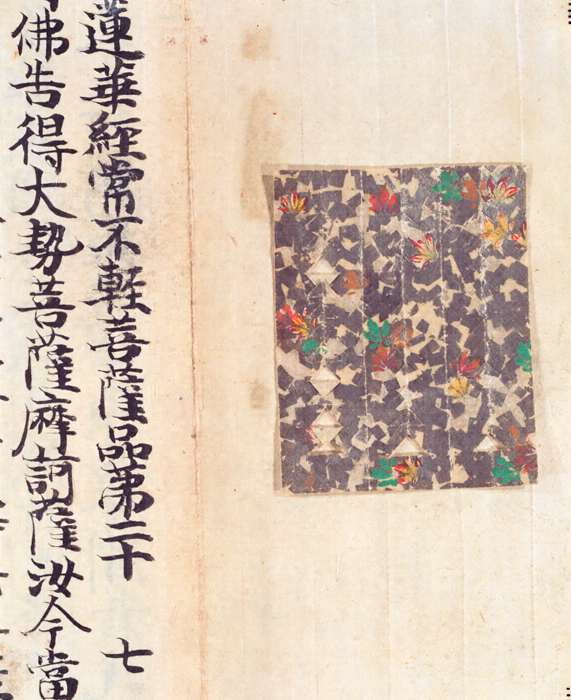 蓮華經常不輕菩薩品第二十 七
佛告得大勢菩薩摩訶薩汝今當